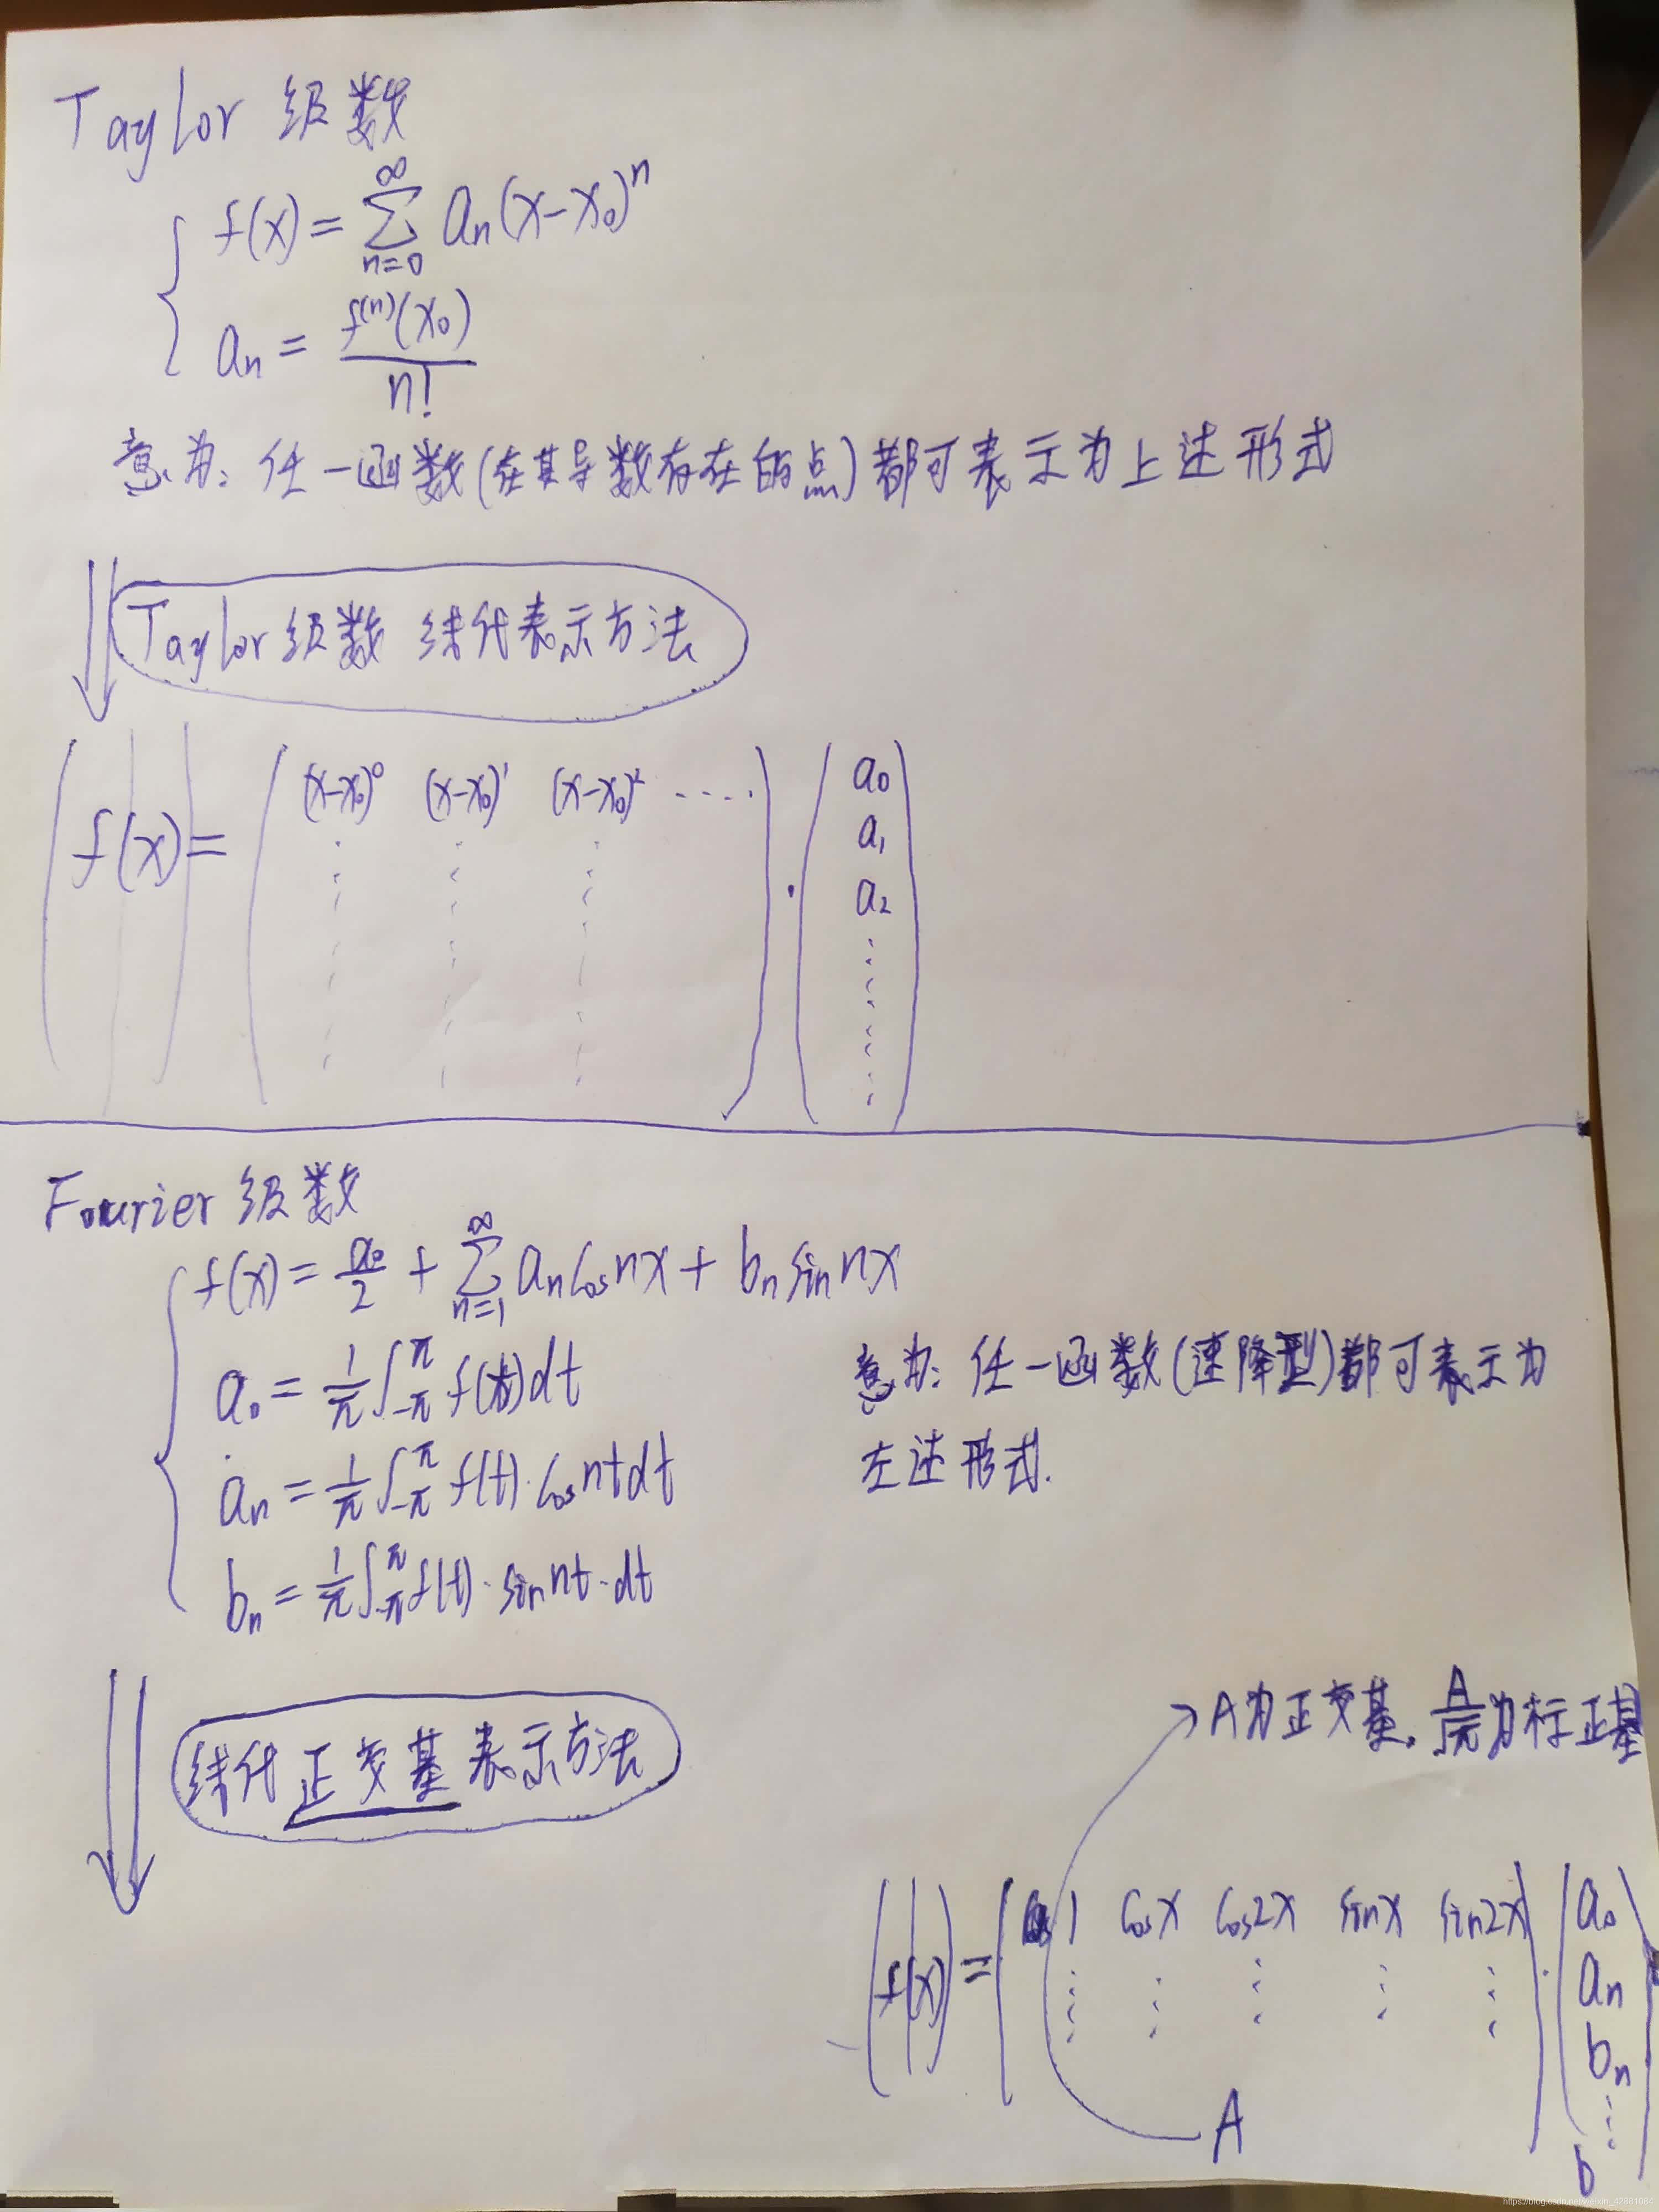 Taylor 级数
f(x) = ∑_{n=0}^{∞} a_n (x-x_0)^n
a_n = f^{(n)}(x_0) / n!
意为: 任一函数(在其导数存在的点)都可表示为上述形式
Taylor 级数 线代表示方法
(f(x)) = ( (x-x_0)^0 (x-x_0)^1 (x-x_0)^2 ····· ) · ( a_0
a_1
a_2
⋮ )
Fourier 级数
f(x) = a_0/2 + ∑_{n=1}^{∞} a_n cos nx + b_n sin nx
a_0 = 1/π ∫_{-π}^{π} f(t) dt
a_n = 1/π ∫_{-π}^{π} f(t)·cos nt dt
b_n = 1/π ∫_{-π}^{π} f(t)·sin nt·dt
意为: 任一函数(速降型)都可表示为
左述形式.
线代 正交基 表示方法
→A为正交基. A/√π 为标正基
(f(x)) = ( 1 cos x cos 2x sin x sin 2x ) · ( a_0
a_n
b_n
⋮
b
A